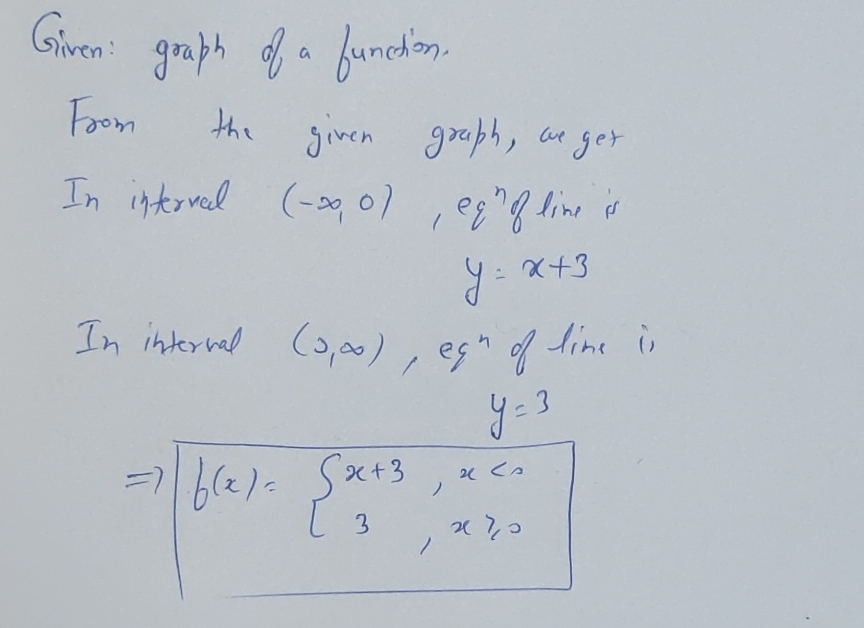 Given: graph of a function.
From the given graph, we get
In interval (-∞, 0) , eqⁿ of line is
y = x+3
In interval (0,∞) , eqⁿ of line is
y = 3
⇒ f(x) = { x+3 , x < 0
3 , x ≥ 0